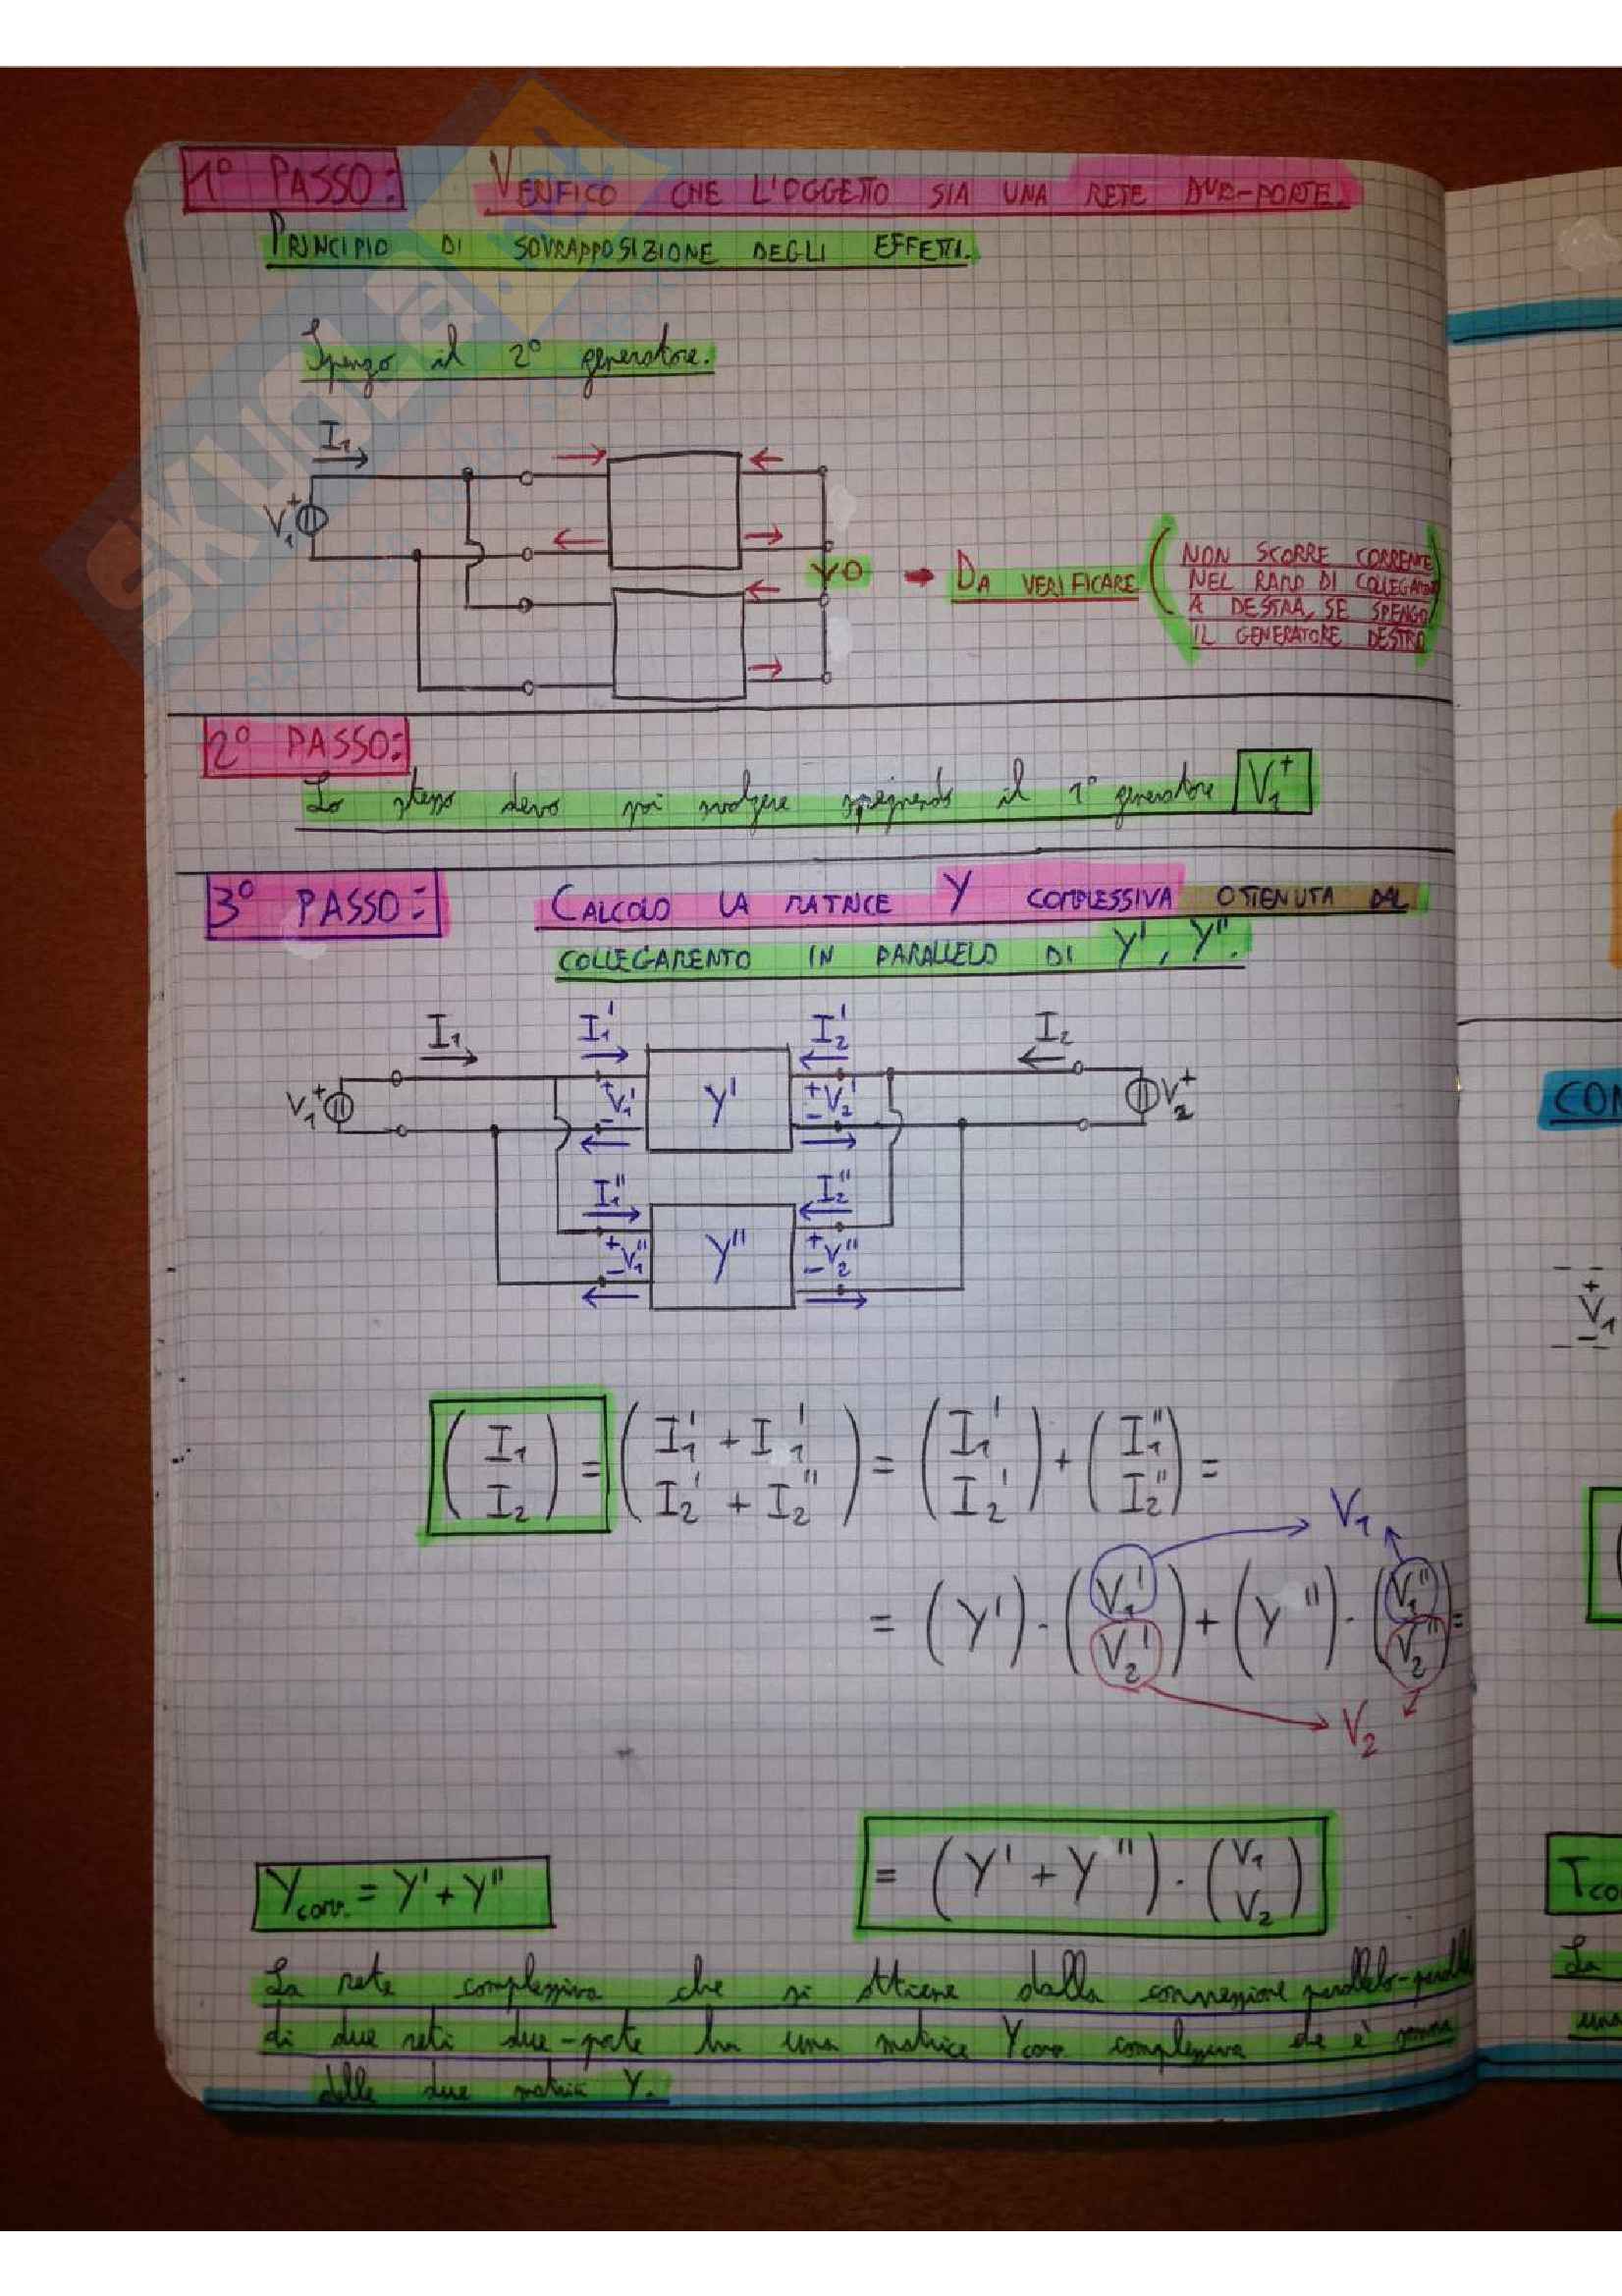 1° PASSO: VERIFICO CHE L'OGGETTO SIA UNA RETE DUE-PORTE.
PRINCIPIO DI SOVRAPPOSIZIONE DEGLI EFFETTI.
Spengo il 2° generatore.
I₁
V₁ +
V0 → DA VERIFICARE (NON SCORRE CORRENTE
NEL RAMO DI COLLEGAMENTO
A DESTRA, SE SPENGO
IL GENERATORE DESTRO)
2° PASSO:
Lo stesso devo poi svolgere spegnendo il 1° generatore V₁⁺
3° PASSO: CALCOLO LA MATRICE Y COMPLESSIVA OTTENUTA DAL
COLLEGAMENTO IN PARALLELO DI Y', Y".
I₁ I₁' I₂' I₂
V₁ + + V₁' - Y' + V₂' - V₂ +
I₁" I₂"
+ V₁" - Y" + V₂" -
(I₁ I₂) = (I₁' + I₁' I₂' + I₂") = (I₁' I₂') + (I₁" I₂") =
V₁
= (Y') · (V₁' V₂') + (Y") · (V₁" V₂") =
V₂
Y conn. = Y' + Y" = (Y' + Y") · (V₁ V₂)
La rete complessiva che si ottiene dalla connessione parallelo-parallelo
di due reti due-porte ha una matrice Y conn. complessiva che è somma
delle due matrici Y.
CON
+
V₁
-
T co
La
una
SKUOLA